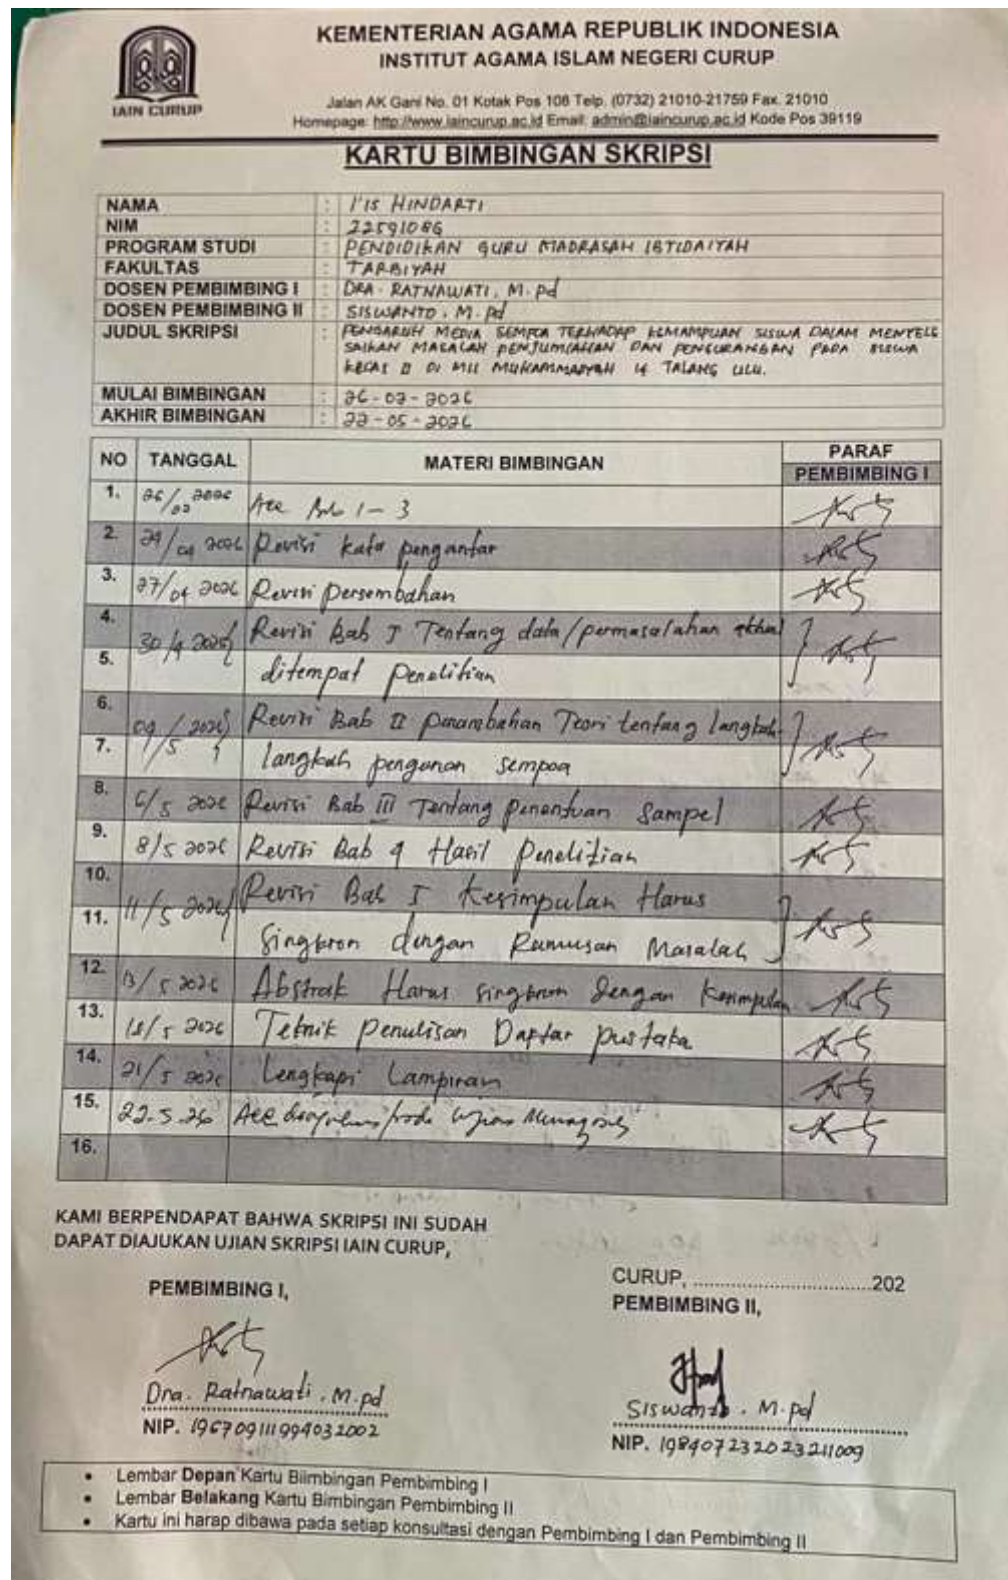 KEMENTERIAN AGAMA REPUBLIK INDONESIA
INSTITUT AGAMA ISLAM NEGERI CURUP
IAIN CURUP
Jalan AK Gani No. 01 Kotak Pos 108 Telp. (0732) 21010-21759 Fax. 21010
Homepage: http://www.iaincurup.ac.id Email: admin@iaincurup.ac.id Kode Pos 39119
KARTU BIMBINGAN SKRIPSI
NAMA : I'IS HINDARTI
NIM : 22591086
PROGRAM STUDI : PENDIDIKAN GURU MADRASAH IBTIDAIYAH
FAKULTAS : TARBIYAH
DOSEN PEMBIMBING I : DRA. RATNAWATI, M.Pd
DOSEN PEMBIMBING II : SISWANTO, M.Pd
JUDUL SKRIPSI : PENGARUH MEDIA SEMPOA TERHADAP KEMAMPUAN SISWA DALAM MENYELE
SAIKAN MASALAH PENJUMLAHAN DAN PENGURANGAN PADA SISWA
KELAS II DI MII MUHAMMADIYAH 14 TALANG ULU.
MULAI BIMBINGAN : 26-02-2026
AKHIR BIMBINGAN : 22-05-2026
NO TANGGAL MATERI BIMBINGAN PARAF
PEMBIMBING I
1. 26/02 2026 Acc Bab 1-3
2. 2026 Revisi kata pengantar
3. 27/04 2026 Revisi Persembahan
4. 30/4 2026 Revisi Bab I Tentang data/permasalahan
5. ditempat Penelitian
6. 2026 Revisi Bab II penambahan Teori tentang langkah-
7. langkah sempoa
8. 6/5 2026 Revisi Bab III Tentang penentuan Sampel
9. 8/5 2026 Revisi Bab 4 Hasil Penelitian
10. 11/5 2026 Revisi Bab Kesimpulan Harus
11. Singkron dengan Rumusan Masalah
12. 13/5 2026 Abstrak Harus singkron dengan Kesimpulan
13. 18/5 2026 Teknik Penulisan Daftar pustaka
14. 21/5 2026 Lengkapi Lampiran
15. 22.5.26 Acc
16.
KAMI BERPENDAPAT BAHWA SKRIPSI INI SUDAH
DAPAT DIAJUKAN UJIAN SKRIPSI IAIN CURUP,
CURUP, ..............................202
PEMBIMBING I,
PEMBIMBING II,
Dra. Ratnawati. M.pd
NIP. 196709111994032002
Siswanto. M.pd
NIP. 198407232023211009
• Lembar Depan Kartu Biimbingan Pembimbing I
• Lembar Belakang Kartu Bimbingan Pembimbing II
• Kartu ini harap dibawa pada setiap konsultasi dengan Pembimbing I dan Pembimbing II